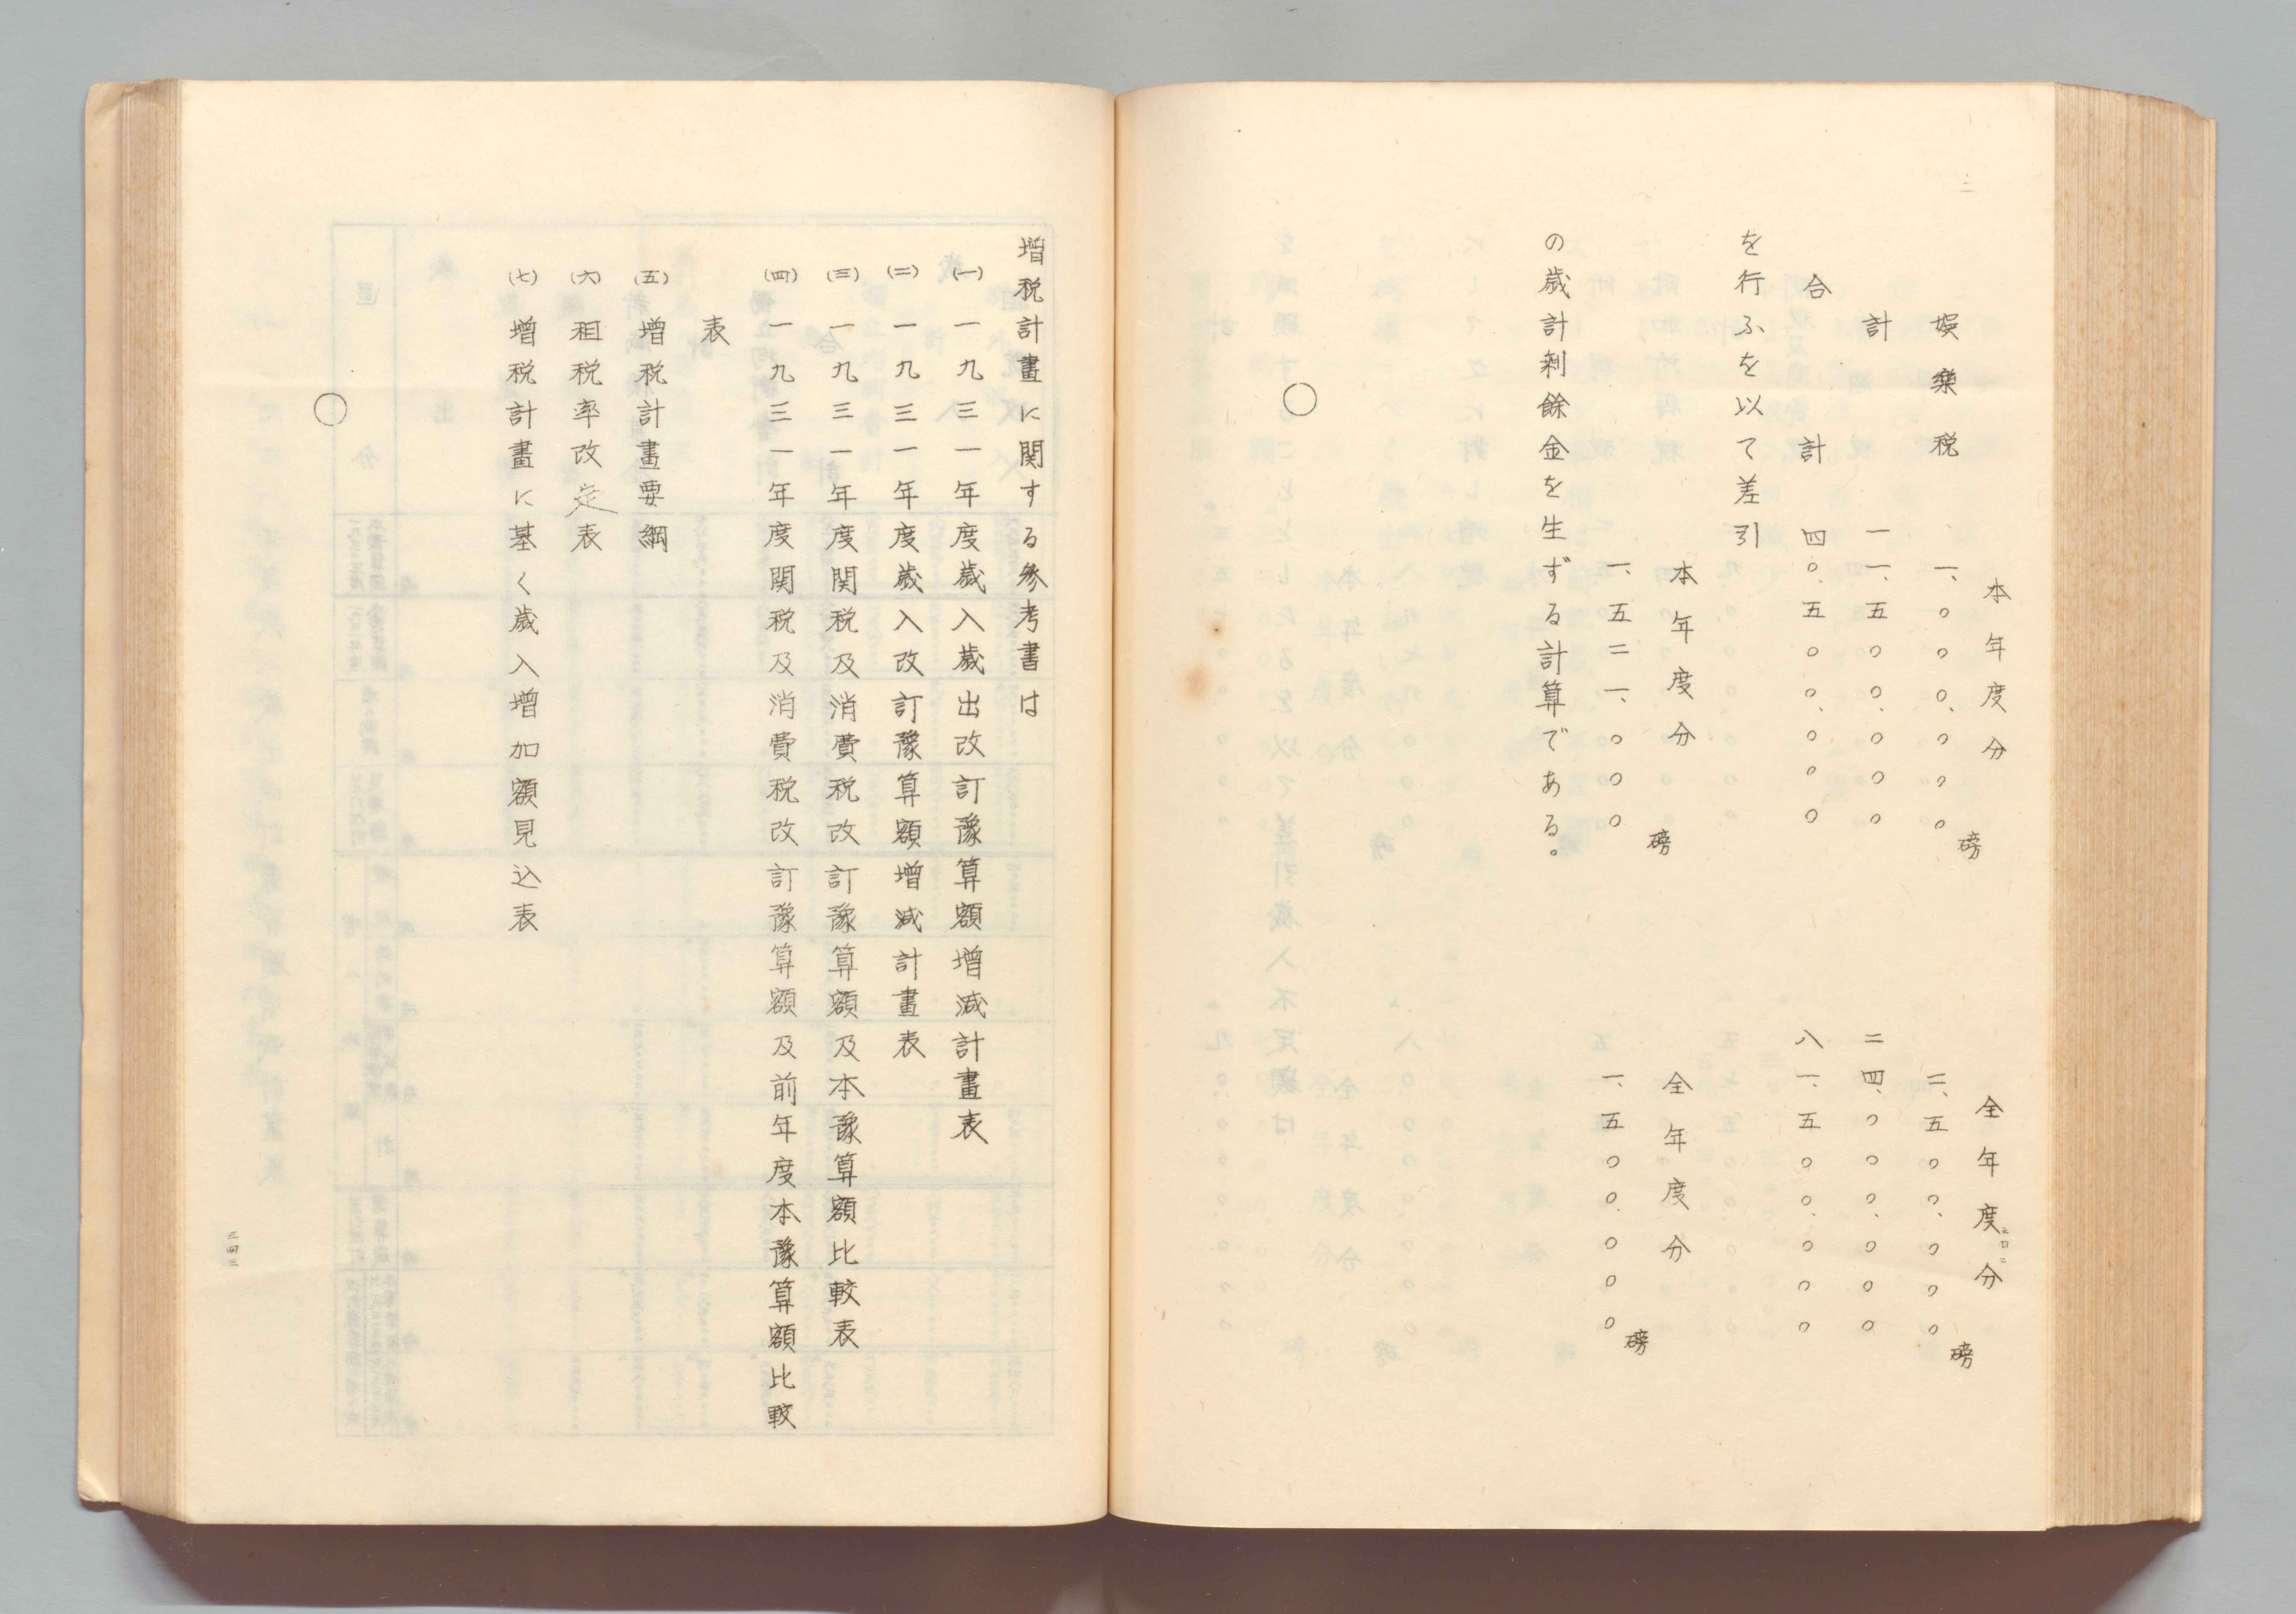 本年度分　全年度分
磅　磅
娯樂税　一、〇〇〇、〇〇〇　二、五〇〇、〇〇〇
計　一一、五〇〇、〇〇〇　二四、〇〇〇、〇〇〇
合計　四〇、五〇〇、〇〇〇　八一、五〇〇、〇〇〇
を行ふを以て差引
本年度分　全年度分
磅　磅
一、五二一、〇〇〇　一、五〇〇、〇〇〇
の歳計剰餘金を生ずる計算である。
〇
増税計畫に関する參考書は
(一)　一九三一年度歳入歳出改訂豫算額増減計畫表
(二)　一九三一年度歳入改訂豫算額増減計畫表
(三)　一九三一年度関税及消費税改訂豫算額及本豫算額比較表
(四)　一九三一年度関税及消費税改訂豫算額及前年度本豫算額比較
表
(五)　増税計畫要綱
(六)　租税率改定表
(七)　増税計畫に基く歳入増加額見込表
〇
三四三